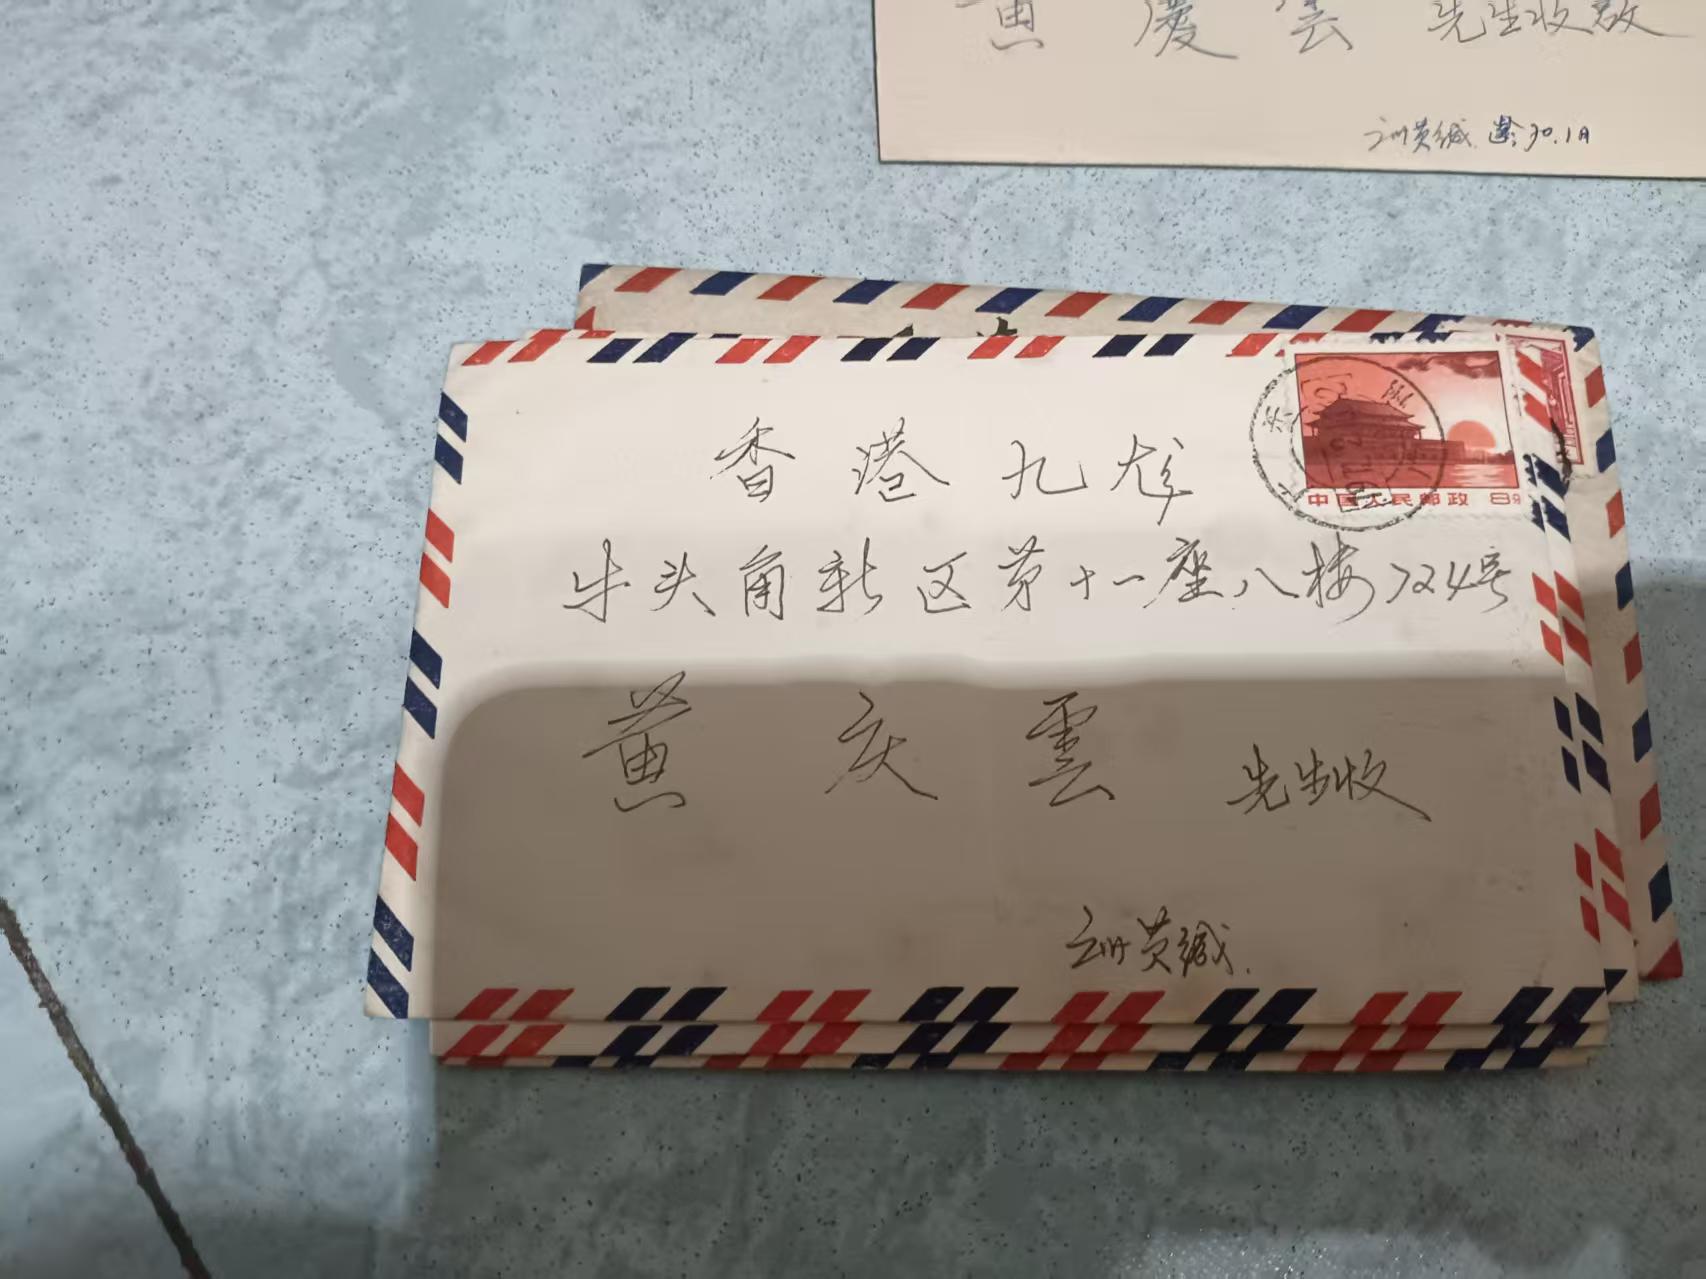 黄 慶 雲 先生收啟
训黄缄 30.1日
香 港 九 龙
中国人民邮政 8分
牛头角新区第十一座八楼724号
黄 庆 雲 先生收
训黄缄.